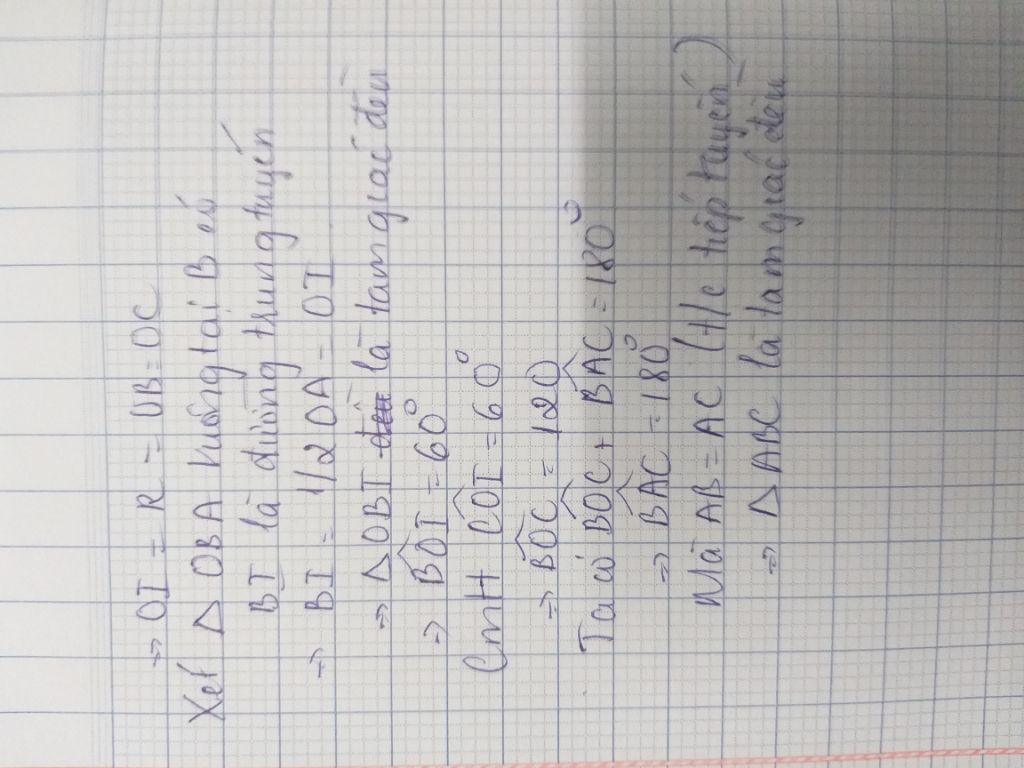 => OI = R = OB = OC
Xét Δ OBA vuông tại B có
BI là đường trung tuyến
=> BI = 1/2 OA = OI
=> Δ OBI là tam giác đều
=> BOI = 60°
CmH COI = 60°
=> BOC = 120
Ta có BOC + BAC = 180°
=> BAC = 180°
Mà AB = AC (t/c tiếp tuyến)
=> Δ ABC là tam giác đều